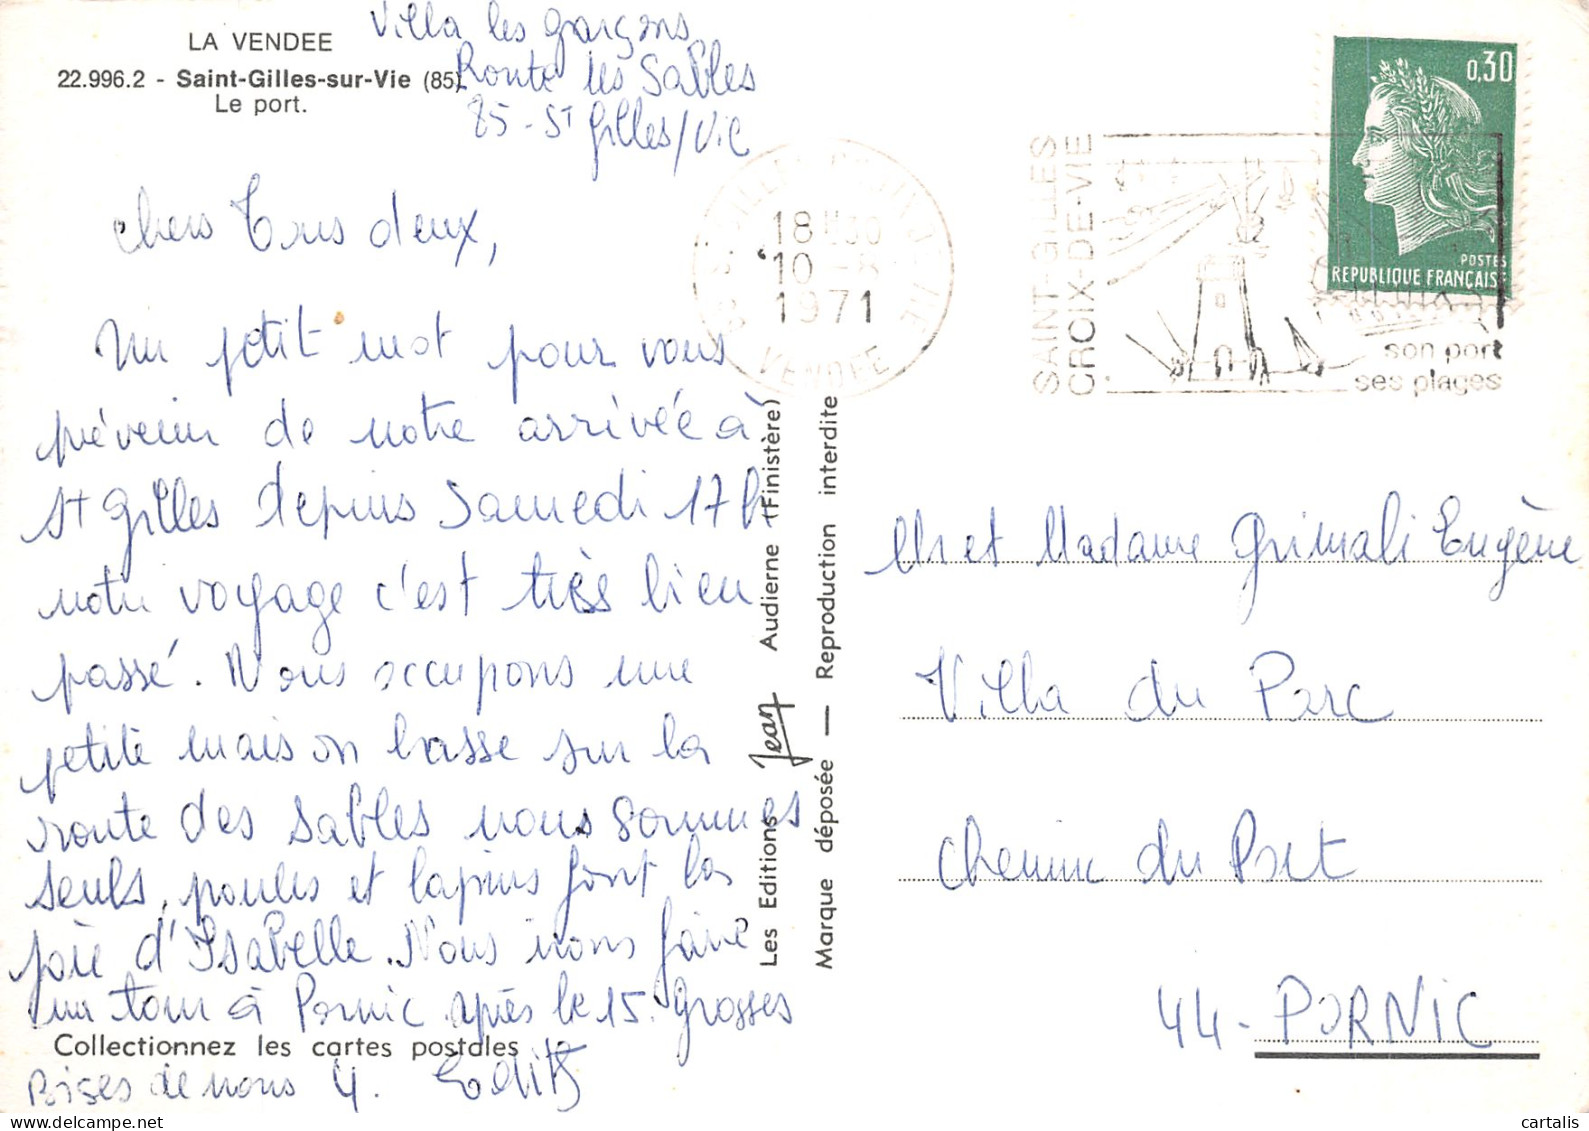 LA VENDEE
22.996.2 - Saint-Gilles-sur-Vie (85)
Le port.
Villa les garçons
Route les Sables
85 - St Gilles/Vie
Chers Tous deux,
Un petit mot pour vous
prévenir de notre arrivée à
St Gilles depuis Samedi 17h
notre voyage c'est très bien
passé. Nous occupons une
petite maison basse sur la
route des Sables nous sommes
seuls, poules et lapins font la
joie d'Isabelle. Nous irons faire
un tour à Pornic après le 15. Grosses
Collectionnez les cartes postales
Bises de nous 4. Edith
Les Editions Jean Audierne (Finistère)
Marque déposée — Reproduction interdite
18H30
10-8
1971
VENDEE
SAINT-GILLES
CROIX-DE-VIE
son port
ses plages
0,30
POSTES
REPUBLIQUE FRANÇAISE
Mr et Madame Grimali Eugène
Villa du Parc
Chemin du Port
44 - PORNIC
cartalis